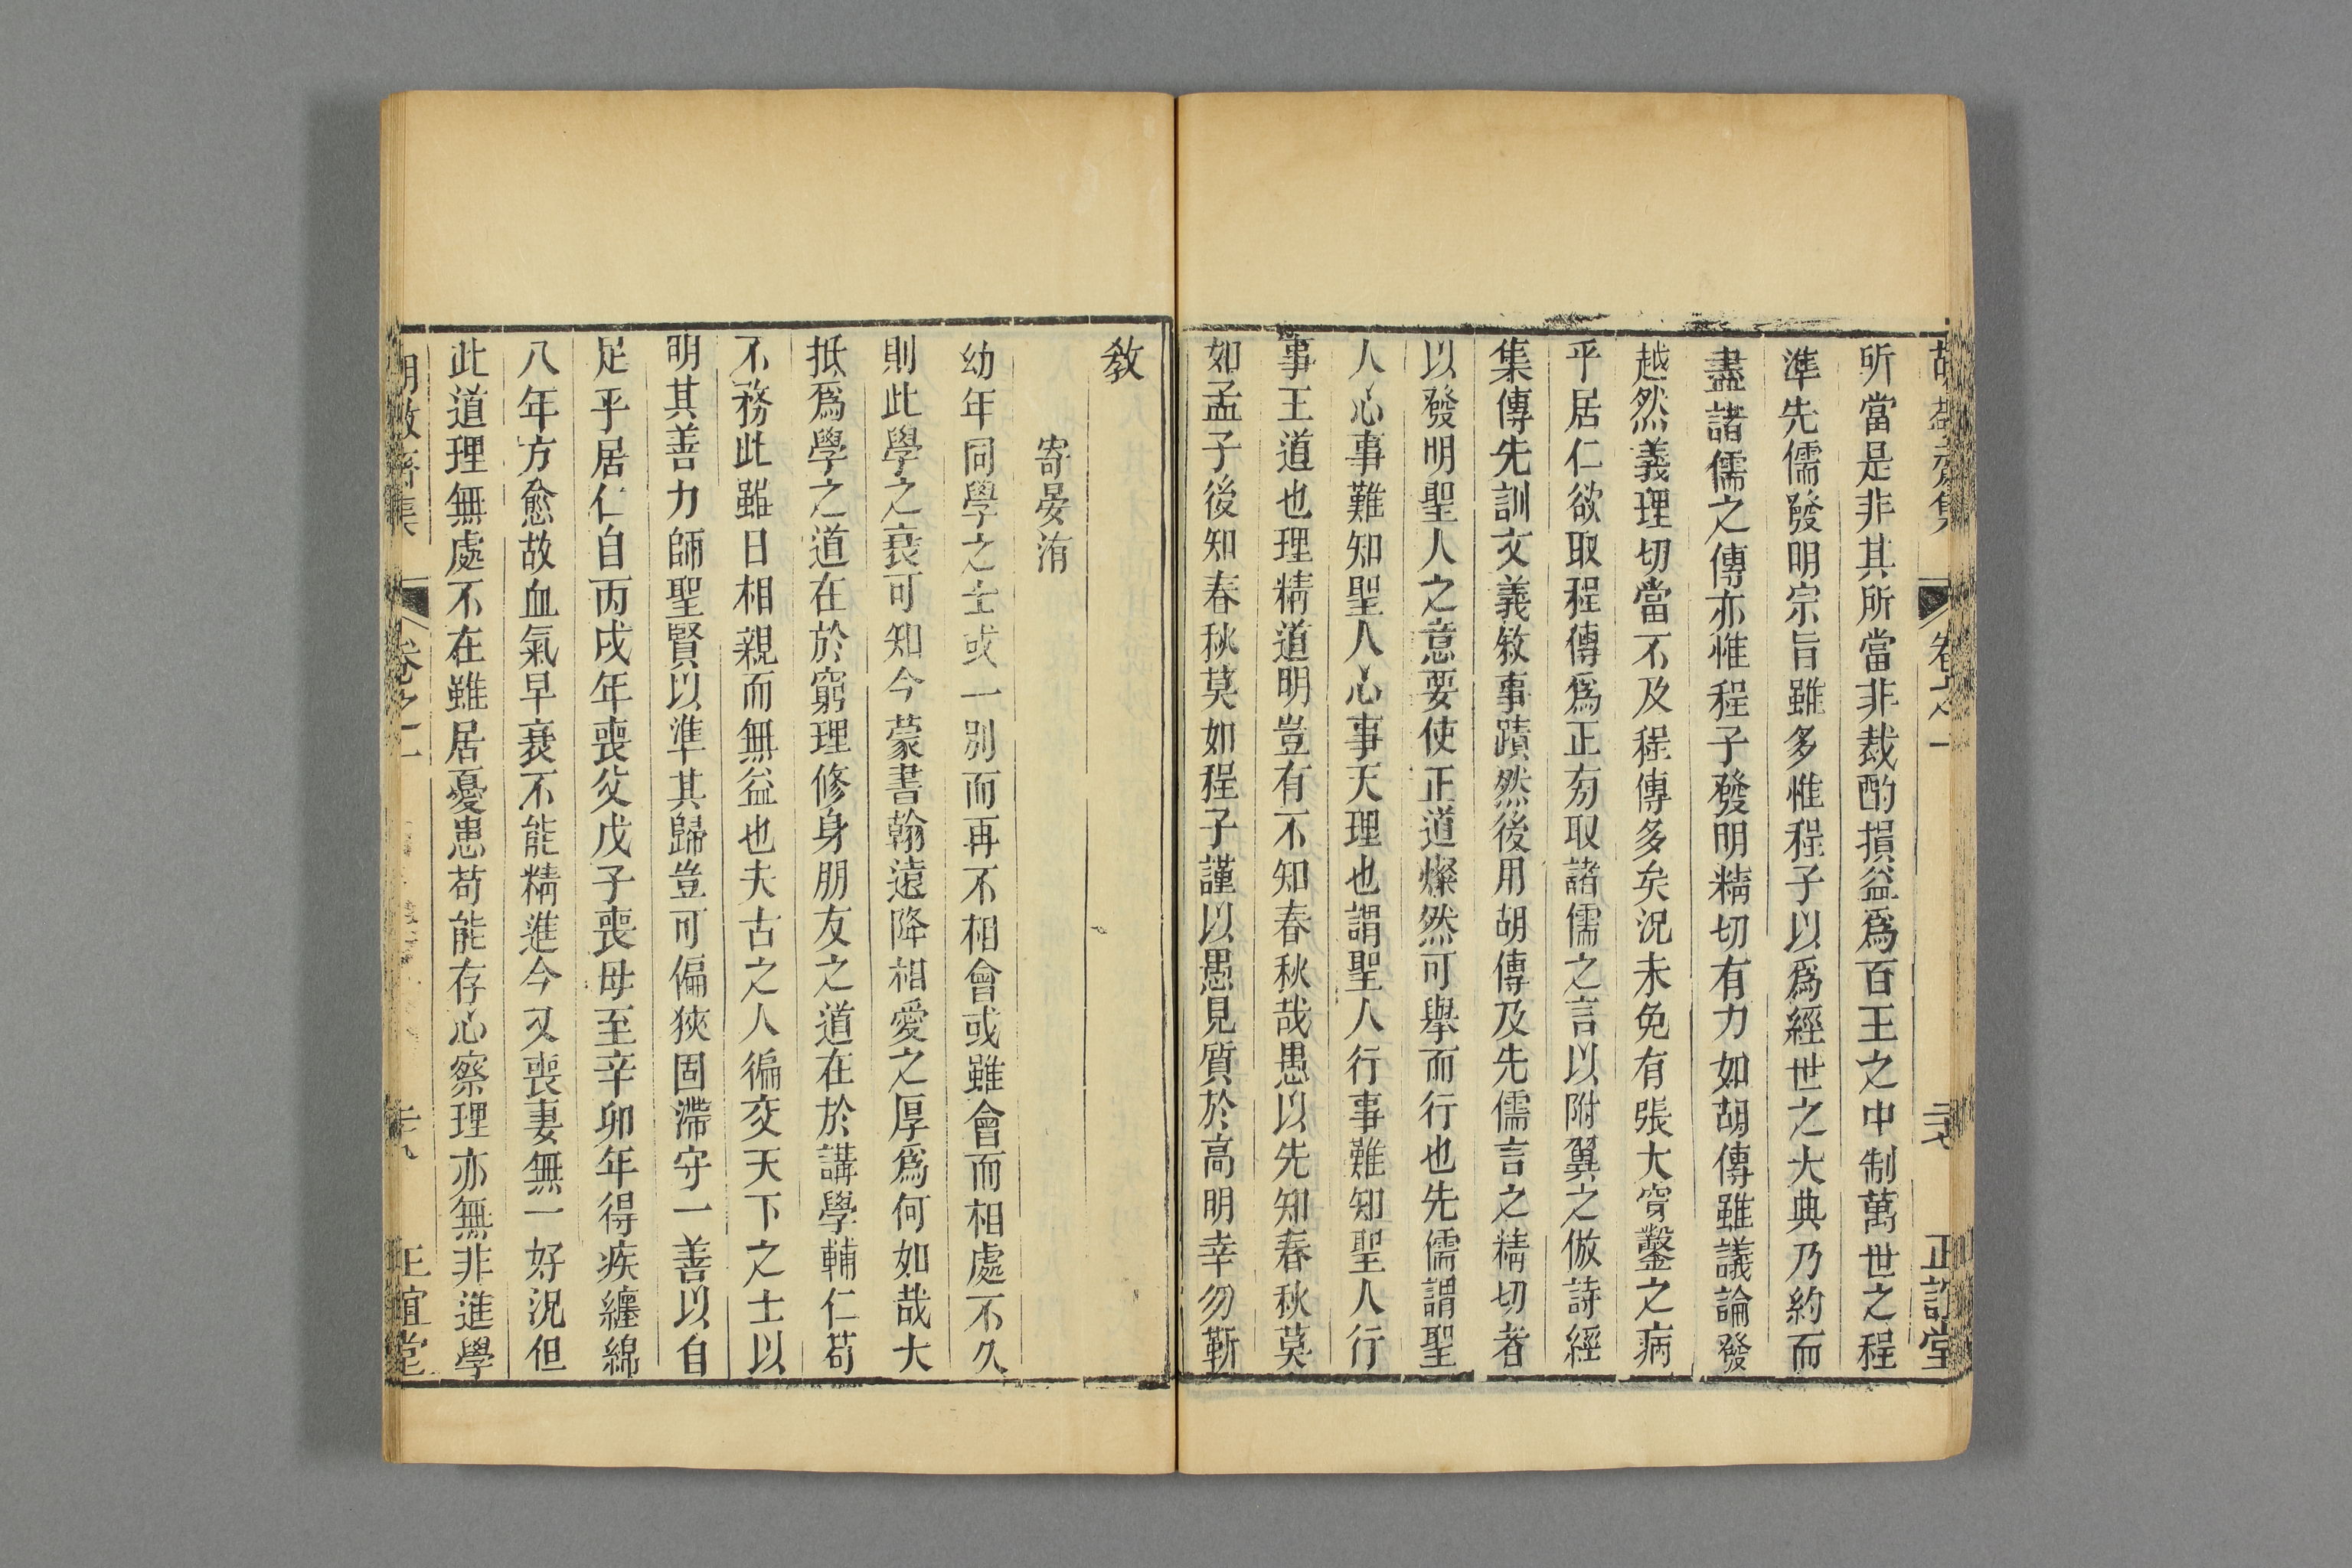 所當是非其所當非裁酌損益爲百王之中制萬世之程
準先儒發明宗旨雖多惟程子以爲經世之大典乃約而
盡諸儒之傳亦惟程子發明精切有力如胡傳雖議論發
越然義理切當不及程傳多矣況未免有張大穿鑿之病
乎居仁欲取程傳爲正夯取諸儒之言以附翼之倣詩經
集傳先訓文義敘事蹟然後用胡傳及先儒言之精切者
以發明聖人之意要使正道燦然可舉而行也先儒謂聖
人心事難知聖人心事天理也謂聖人行事難知聖人行
事王道也理精道明豈有不知春秋哉愚以先知春秋莫
如孟子後知春秋莫如程子謹以愚見質於高明幸勿靳
教
寄晏洧
幼年同學之士或一别而再不相會或雖會而相處不久
則此學之衰可知今蒙書翰遠降相愛之厚爲何如哉大
抵爲學之道在於窮理修身朋友之道在於講學輔仁苟
不務此雖日相親而無益也夫古之人徧交天下之士以
明其善力師聖賢以準其歸豈可偏狹固滯守一善以自
足乎居仁自丙戌年喪父戊子喪母至辛卯年得疾纏綿
八年方愈故血氣早衰不能精進今又喪妻無一好況但
此道理無處不在雖居憂患苟能存心察理亦無非進學
胡敬齋集 卷之二 正誼堂